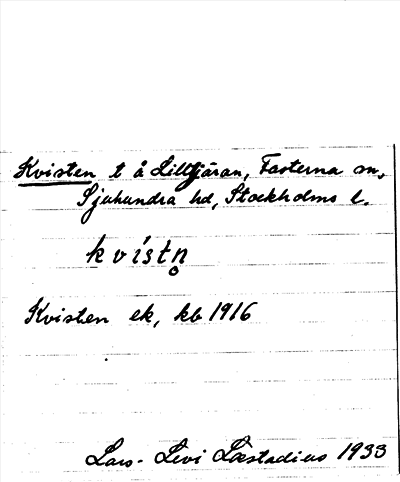 Kvisten t å Lilltjäran, Fasterna sn,
Sjuhundra hd, Stockholms l.
kvístn̥
Kvisten ek, kb 1916
Lars-Levi Læstadius 1933